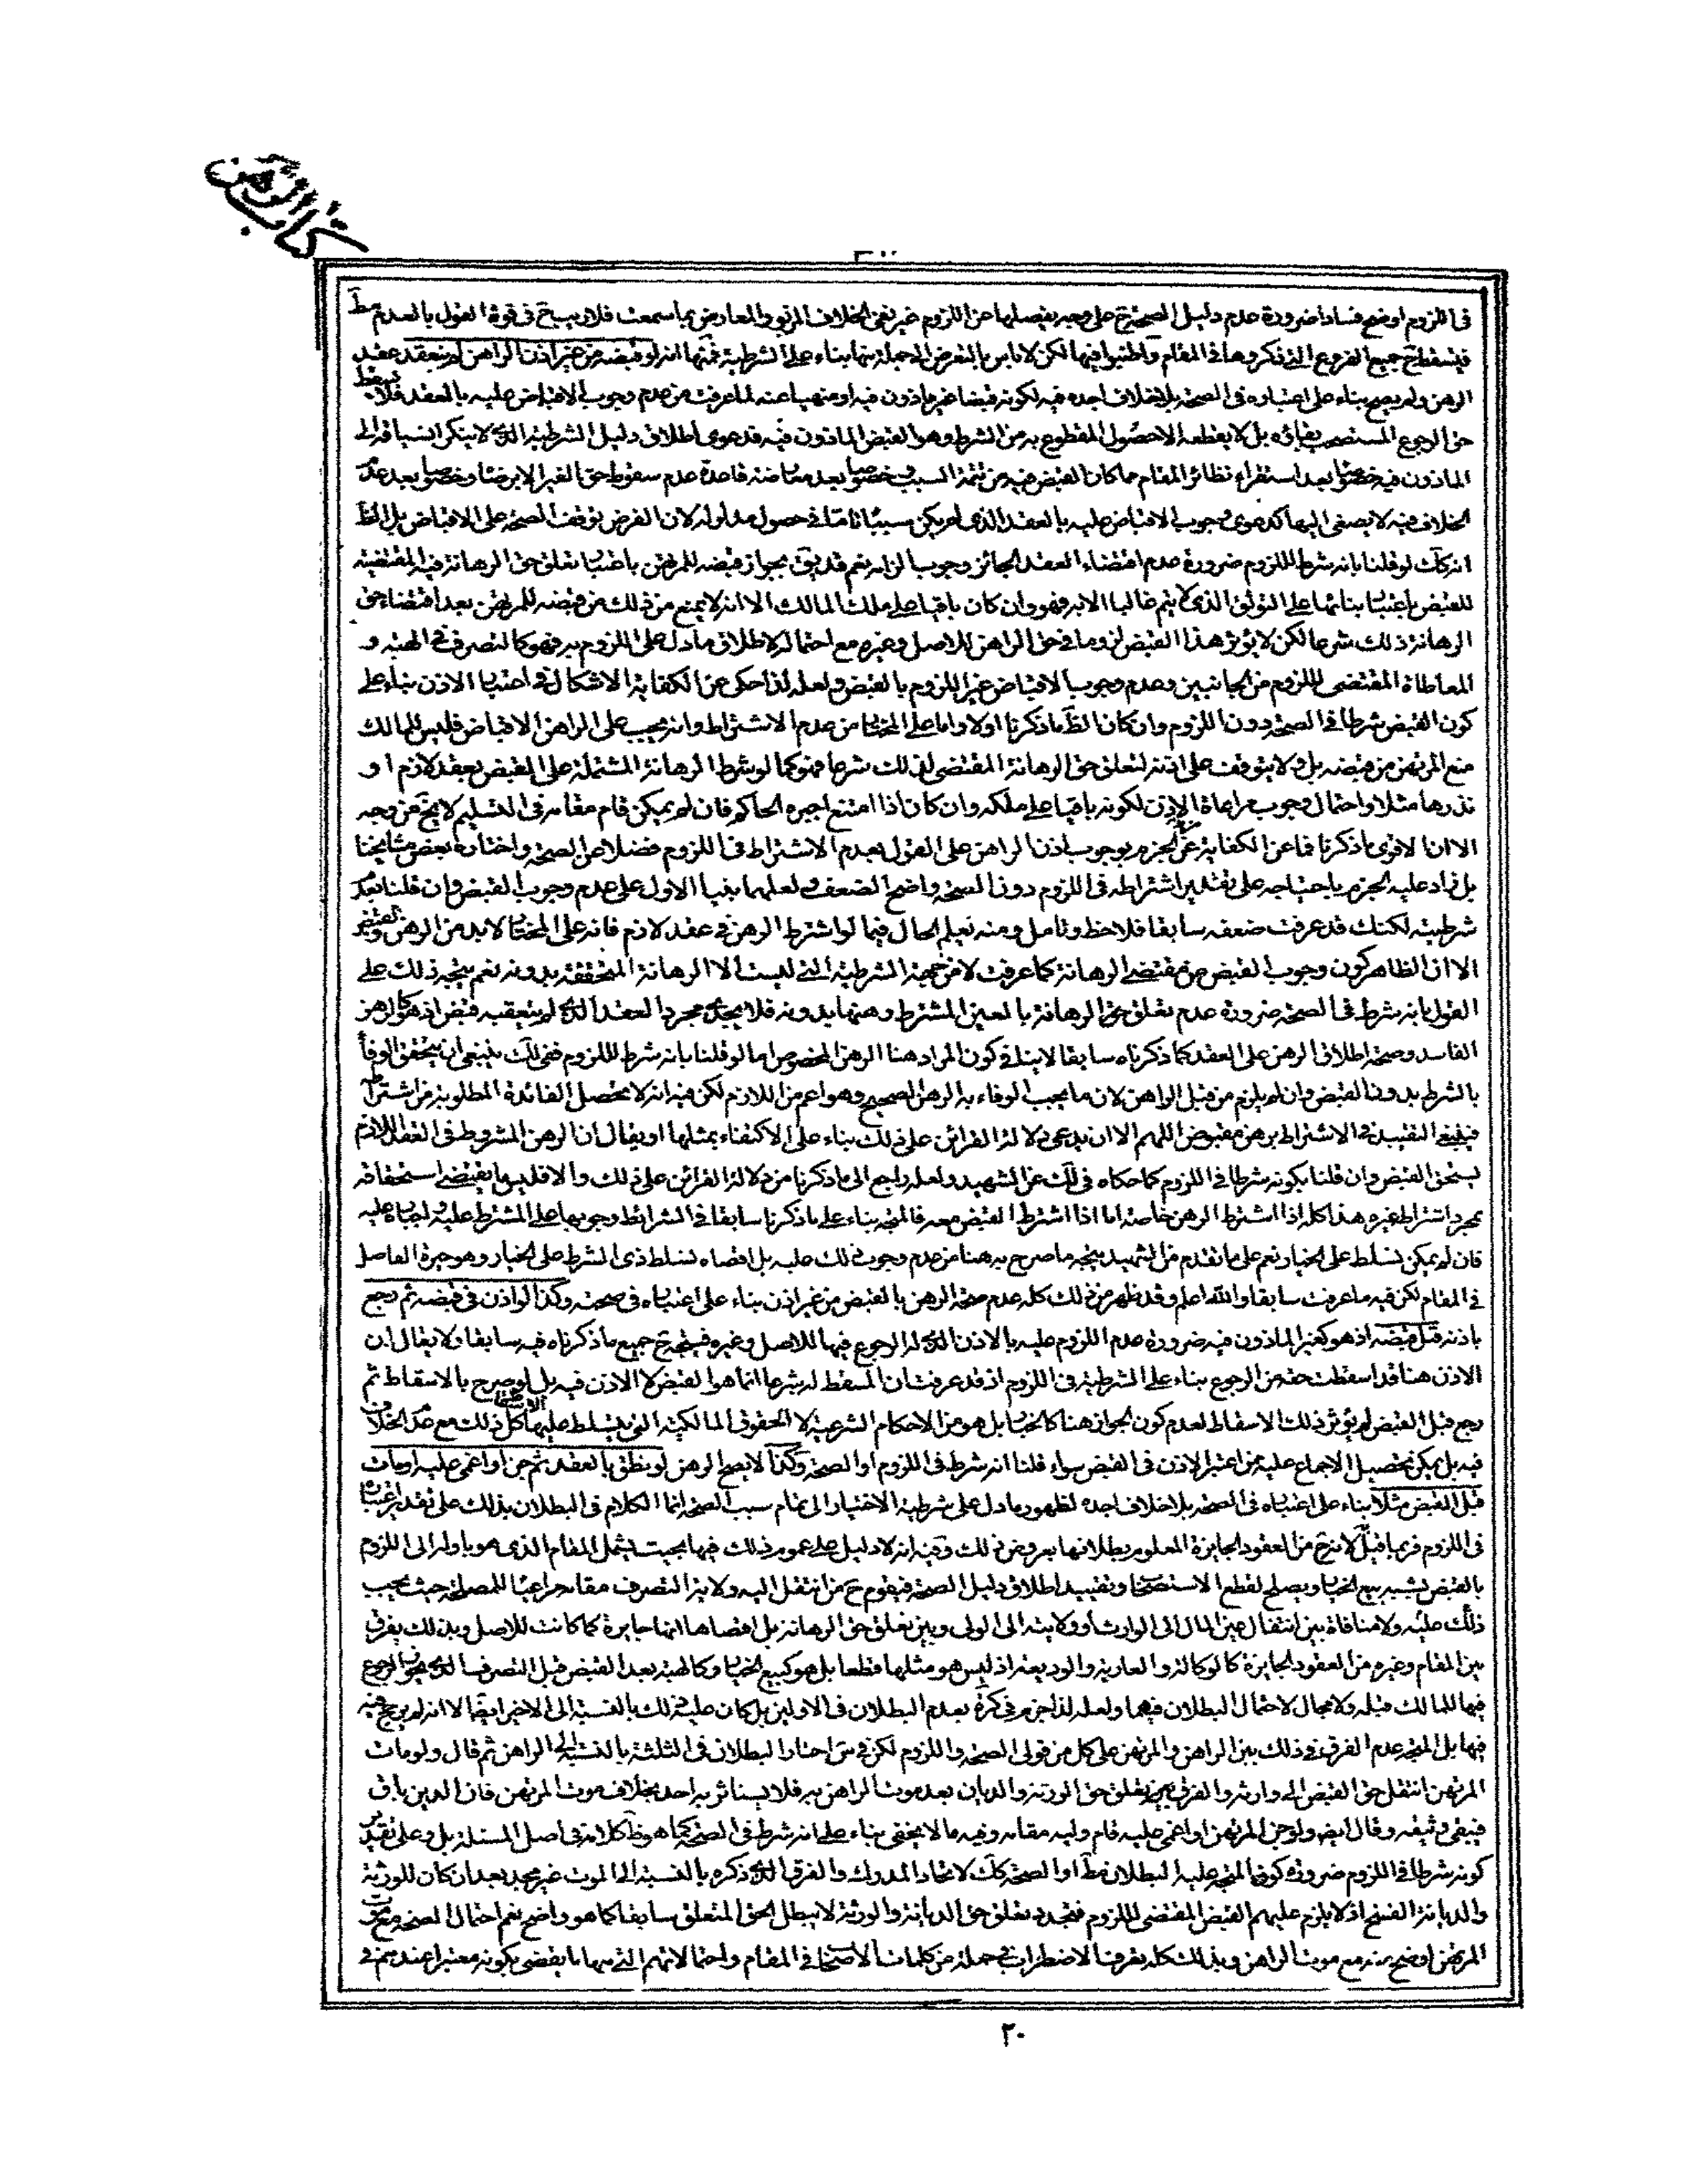 كتاب الرهن
في اللزوم اوضح فسادا ضرورة عدم دليل الصحة ح على وجه يفصلها عن اللزوم غير نفى الخلاف المزبور والمعارض بما سمعت فلا ريب ح في قوة القول بالعدم مط
فيسقط ح جميع الفروع التي ذكروها في المقام واطنبوا فيها لكن لا باس بالتعرض لجملة منها بناء على الشرطية فمنها انه لو قبضه من غير اذن الراهن لم ينعقد عقد
الرهن ولم يصح بناء على اعتباره في الصحة بلا خلاف اجده فيه لكونه قبضا غير ماذون فيه او منهيا عنه لما عرفت من عدم وجوب الاقباض عليه بالعقد فلا يسقط
حق الرجوع المستصحب بقاؤه بل لا يقطعه الا حصول المقطوع به من الشرط وهو القبض الماذون فيه فدعوى اطلاق دليل الشرطية الذي لا ينكر انسياقه الى
الماذون فيه خصوصا بعد استقراء نظائر المقام مما كان القبض فيه من تتمة السبب وخصوصا بعد معارضته قاعدة عدم سقوط حق الغير الا برضا وخصوصا بعد عدم
الخلاف فيه لا يصغى اليها كدعوى وجوب الاقباض عليه بالعقد الذي لم يكن سببا تاما في حصول مدلوله لان الفرض توقف الصحة على الاقباض بل الظ
انه كك لو قلنا بانه شرط للزوم ضرورة عدم اقتضاء العقد الجائز وجوب الزامه نعم قد يق بجواز قبضه للمرتهن باعتبار تعلق حق الرهانة فيه المقتضية
للقبض باعتبار بنائها على التوثق الذي لا يتم غالبا الا به فهو وان كان باقيا على ملك المالك الا انه لا يمنع من ذلك من قبضه للمرتهن بعد اقتضاء حق
الرهانة ذلك شرعا لكن لا يؤثر هذا القبض لزوما في حق الراهن للاصل وغيره مع احتماله لاطلاق ما دل على اللزوم به فهو كالتصرف في الهبة و
المعاطاة المقتضى للزوم من الجانبين وعدم وجوب الاقباض غير اللزوم بالقبض ولعله لذا حكى عن الكفاية الاشكال في اعتبار الاذن بناء على
كون القبض شرطا في الصحة دون اللزوم وان كان الظ ما ذكرنا اولا واما على المختار من عدم الاشتراط وانه يجب على الراهن الاقباض فليس للمالك
منع المرتهن من قبضه بل ولا يتوقف على اذنه لتعلق حق الرهانة المقتضى لذلك شرعا فهو كما لو شرط الرهانة المشتملة على القبض بعقد لازم او
نذرها مثلا واحتمال وجوب مراعاة الاذن لكونه باقيا على ملكه وان كان اذا امتنع اجبره الحاكم فان لم يمكن قام مقامه في التسليم لا يخ من وجه
الا ان الاقوى ما ذكرنا فما عن الكفاية من الجزم بوجوب اذن الراهن على القول بعدم الاشتراط في اللزوم فضلا عن الصحة واختاره بعض مشايخنا
بل زاد عليه الجزم باحتياجه على تقدير اشتراطه في اللزوم دون الصحة واضح الضعف ولعلهما بنيا الاول على عدم وجوب القبض وان قلنا بعدم
شرطيته لكنك قد عرفت ضعفه سابقا فلاحظ وتامل ومنه تعلم الحال فيما لو اشترط الرهن في عقد لازم فانه على المختار لا بد من الرهن والقبض
الا ان الظاهر كون وجوب القبض من مقتضى الرهانة كما عرفت لا من جهة الشرطية التي ليست الا الرهانة المتحققة بدونه نعم يتجه ذلك على
القول بانه شرط في الصحة ضرورة عدم تعلق حق الرهانة بالعين المشترط رهنها بدونه فلا يجدى مجرد العقد الذي لم يتعقبه قبض اذ هو كالرهن
الفاسد وصحة اطلاق الرهن على العقد كما ذكرناه سابقا لا ينافى كون المراد هنا الرهن المخصوص اما لو قلنا بانه شرط للزوم ففى لك ينبغي ان يتحقق الوفاء
بالشرط بدون القبض وان لم يلزم من قبل الراهن لان ما يجب الوفاء به الرهن الصحيح وهو اعم من اللازم لكن فيه انه لا يحصل الفائدة المطلوبة من اشتراطه
فينبغي التقييد في الاشتراط برهن مقبوض اللهم الا ان يدعى دلالة القرائن على ذلك بناء على الاكتفاء بمثلها او يقال ان الرهن المشروط في العقد اللازم
يستحق القبض وان قلنا بكونه شرطا في اللزوم كما حكاه في لك عن الشهيد ولعله راجع الى ما ذكرنا من دلالة القرائن على ذلك والا فليس ما يقتضى استحقاقه
بمجرد اشتراط غيره هذا كله اذا اشترط الرهن خاصة اما اذا اشترط القبض معه فالمتجه بناء على ما ذكرنا سابقا في الشرائط وجوبها على المشترط عليه واجباره عليه
فان لم يمكن تسلط على الخيار نعم على ما تقدم من الشهيد يتجه ما صرح به هنا من عدم وجوب ذلك عليه بل اقصاه تسلط ذى الشرط على الخيار وهو جيرة الفاصل
في المقام لكن فيه ما عرفت سابقا والله اعلم وقد ظهر من ذلك كله عدم صحة الرهن بالقبض من غير اذن بناء على اعتباره في صحته وكذا لو اذن في قبضه ثم رجع
باذنه قبل قبضه اذ هو كغير الماذون فيه ضرورة عدم اللزوم عليه بالاذن الذي له الرجوع فيها للاصل وغيره فيتجه ح جميع ما ذكرناه فيه سابقا ولا يقال ان
الاذن هنا قد اسقطت حقه من الرجوع بناء على الشرطية في اللزوم اذ قد عرفت ان المسقط له شرعا انما هو القبض لا الاذن فيه بل لو صرح بالاسقاط ثم
رجع قبل القبض لم يؤثر ذلك الاسقاط لعدم كون الجواز هنا كالخيار بل هو من الاحكام الشرعية لا الحقوق المالكية التي يتسلط عليها كل ذلك مع عدم الخلاف
فيه بل يمكن تحصيل الاجماع عليه ممن اعتبر الاذن في القبض سواء قلنا انه شرط في اللزوم او الصحة وكذا لا يصح الرهن لو نطق بالعقد ثم جن او اغمى عليه او مات
قبل القبض مثلا بناء على اعتباره في الصحة بلا خلاف اجده لظهور ما دل على شرطية الاختيار الى تمام سبب الصحة انما الكلام في البطلان بذلك على تقدير اعتباره
في اللزوم فربما قيل لانه ح من العقود الجايزة المعلوم بطلانها بعروض ذلك وفيه انه لا دليل على عموم ذلك فيها بحيث يشمل المقام الذي هو باول الى اللزوم
بالقبض يشبه بيع الخيار ويصلح لقطع الاستصحاب وتقييد اطلاق دليل الصحة فيقوم ح من انتقل اليه ولاية التصرف مقامه مراعيا للمصلحة حيث يجب
ذلك عليه ولا منافاة بين انتقال عين المال الى الوارث او ولايته الى الولى وبين تعلق حق الرهانة بل اقصاها انها جايزة كما كانت للاصل وبذلك يفرق
بين المقام وغيره من العقود الجايزة كالوكالة والعارية والوديعة اذ ليس هو مثلها قطعا بل هو كبيع الخيار وكالهبة بعد القبض قبل التصرف الذي يجوز الرجوع
فيها للمالك قبله ولا مجال لاحتمال البطلان فيهما ولعله لذا جزم في كرة بعدم البطلان في الاولين بل كان عليه ذلك بالنسبة الى الاخير ايضا الا انه لم يرجح فيه
فيها بل المتجه عدم الفرق في ذلك بين الراهن والمرتهن على كل من قولى الصحة واللزوم لكن في س اختار البطلان في الثلثة بالنسبة الى الراهن ثم قال ولو مات
المرتهن انتقل حق القبض الى وارثه والفرق بينه تعلق حق الورثة والديان بعد موت الراهن به فلا يستاثر به احد بخلاف موت المرتهن فان الدين باق
فيبقى وثيقه وقال ايض ولو جن المرتهن او اغمى عليه قام وليه مقامه وفيه ما لا يخفى بناء على انه شرط في الصحة كما هو ظ كلامه في اصل المسئلة بل وعلى تقدير
كونه شرطا في اللزوم ضرورة كون المتجه عليه البطلان مط او الصحة كك لاتحاد المدرك والفرق الذي ذكره بالنسبة الى الموت غير مجد بعد ان كان للورثة
والديانة الفسخ اذ لا يلزم عليهم القبض المقتضى للزوم فتجدد تعلق حق الديانة والورثة لا يبطل الحق المتعلق سابقا كما هو واضح نعم احتمال الصحة مع موت
المرتهن اوضح منه مع موت الراهن وبذلك كله يعرف الاضطراب في جملة من كلمات الاصحاب في المقام واحتمالاتهم التي منها ما يقضى بكونه معتبرا عندهم في
٢٠